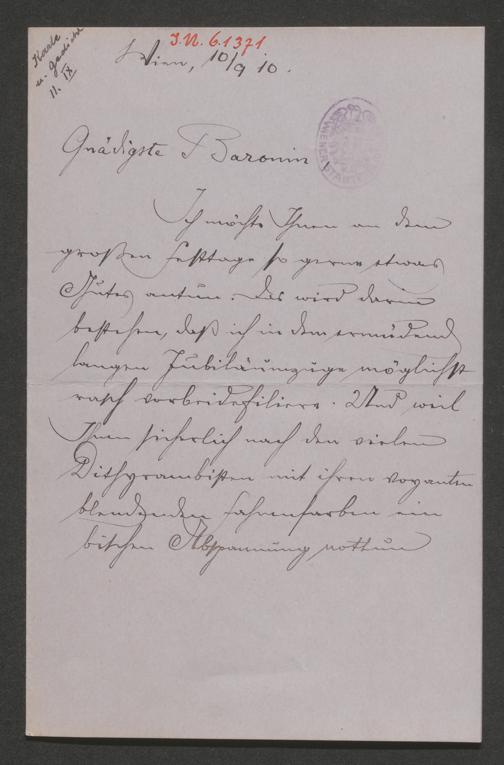 J.N. 61371
Karte
u. Gedicht
11. IX
Wien, 10/9 10.
Gnädigste Baronin,
Ich möchte Ihnen an dem
großen Festtage so gerne etwas
Gutes antun. Das wird darin
bestehen, daß ich in dem ermüdend
langen Jubiläumzuge möglichst
rasch vorbeidefiliere. Und weil
Ihnen sicherlich nach den vielen
Dithyrambisten mit ihren voyanten
blendenden Fahnenfarben ein
bischen Abspannung nottun